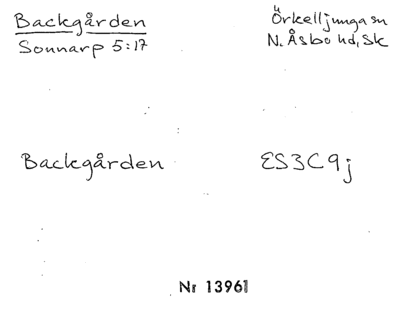 Backgården
Sonnarp 5:17
Örkelljunga sn
N. Åsbo hd, Sk
Backgården
ES3C9j
Nr 13961